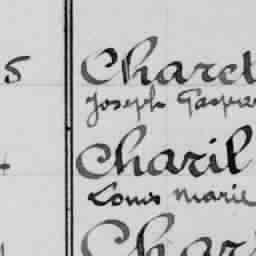 5 Charet
Joseph Gaspar
Charil
Louis Marie
Char